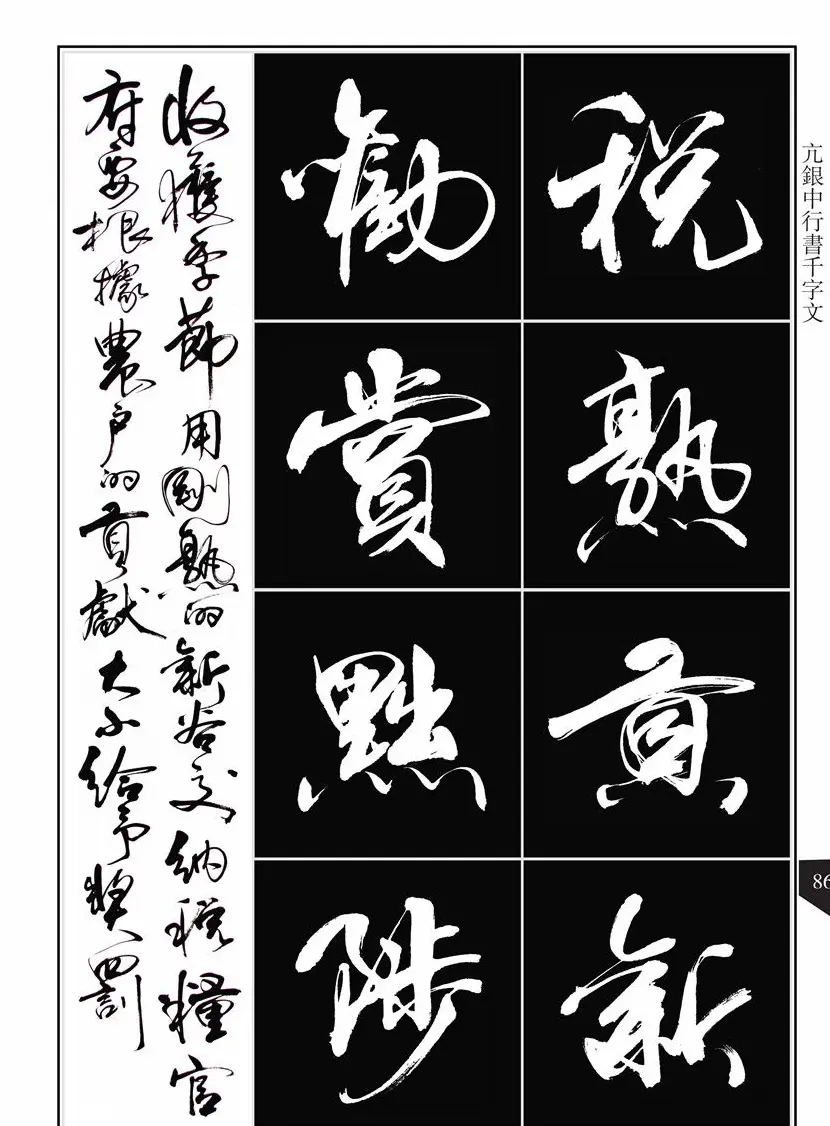 亢銀中行書千字文
86
税熟貢新
勸賞黜陟
收穫季節用剛熟的新谷交納税糧官
府要根據農户的貢獻大小給予奬罰